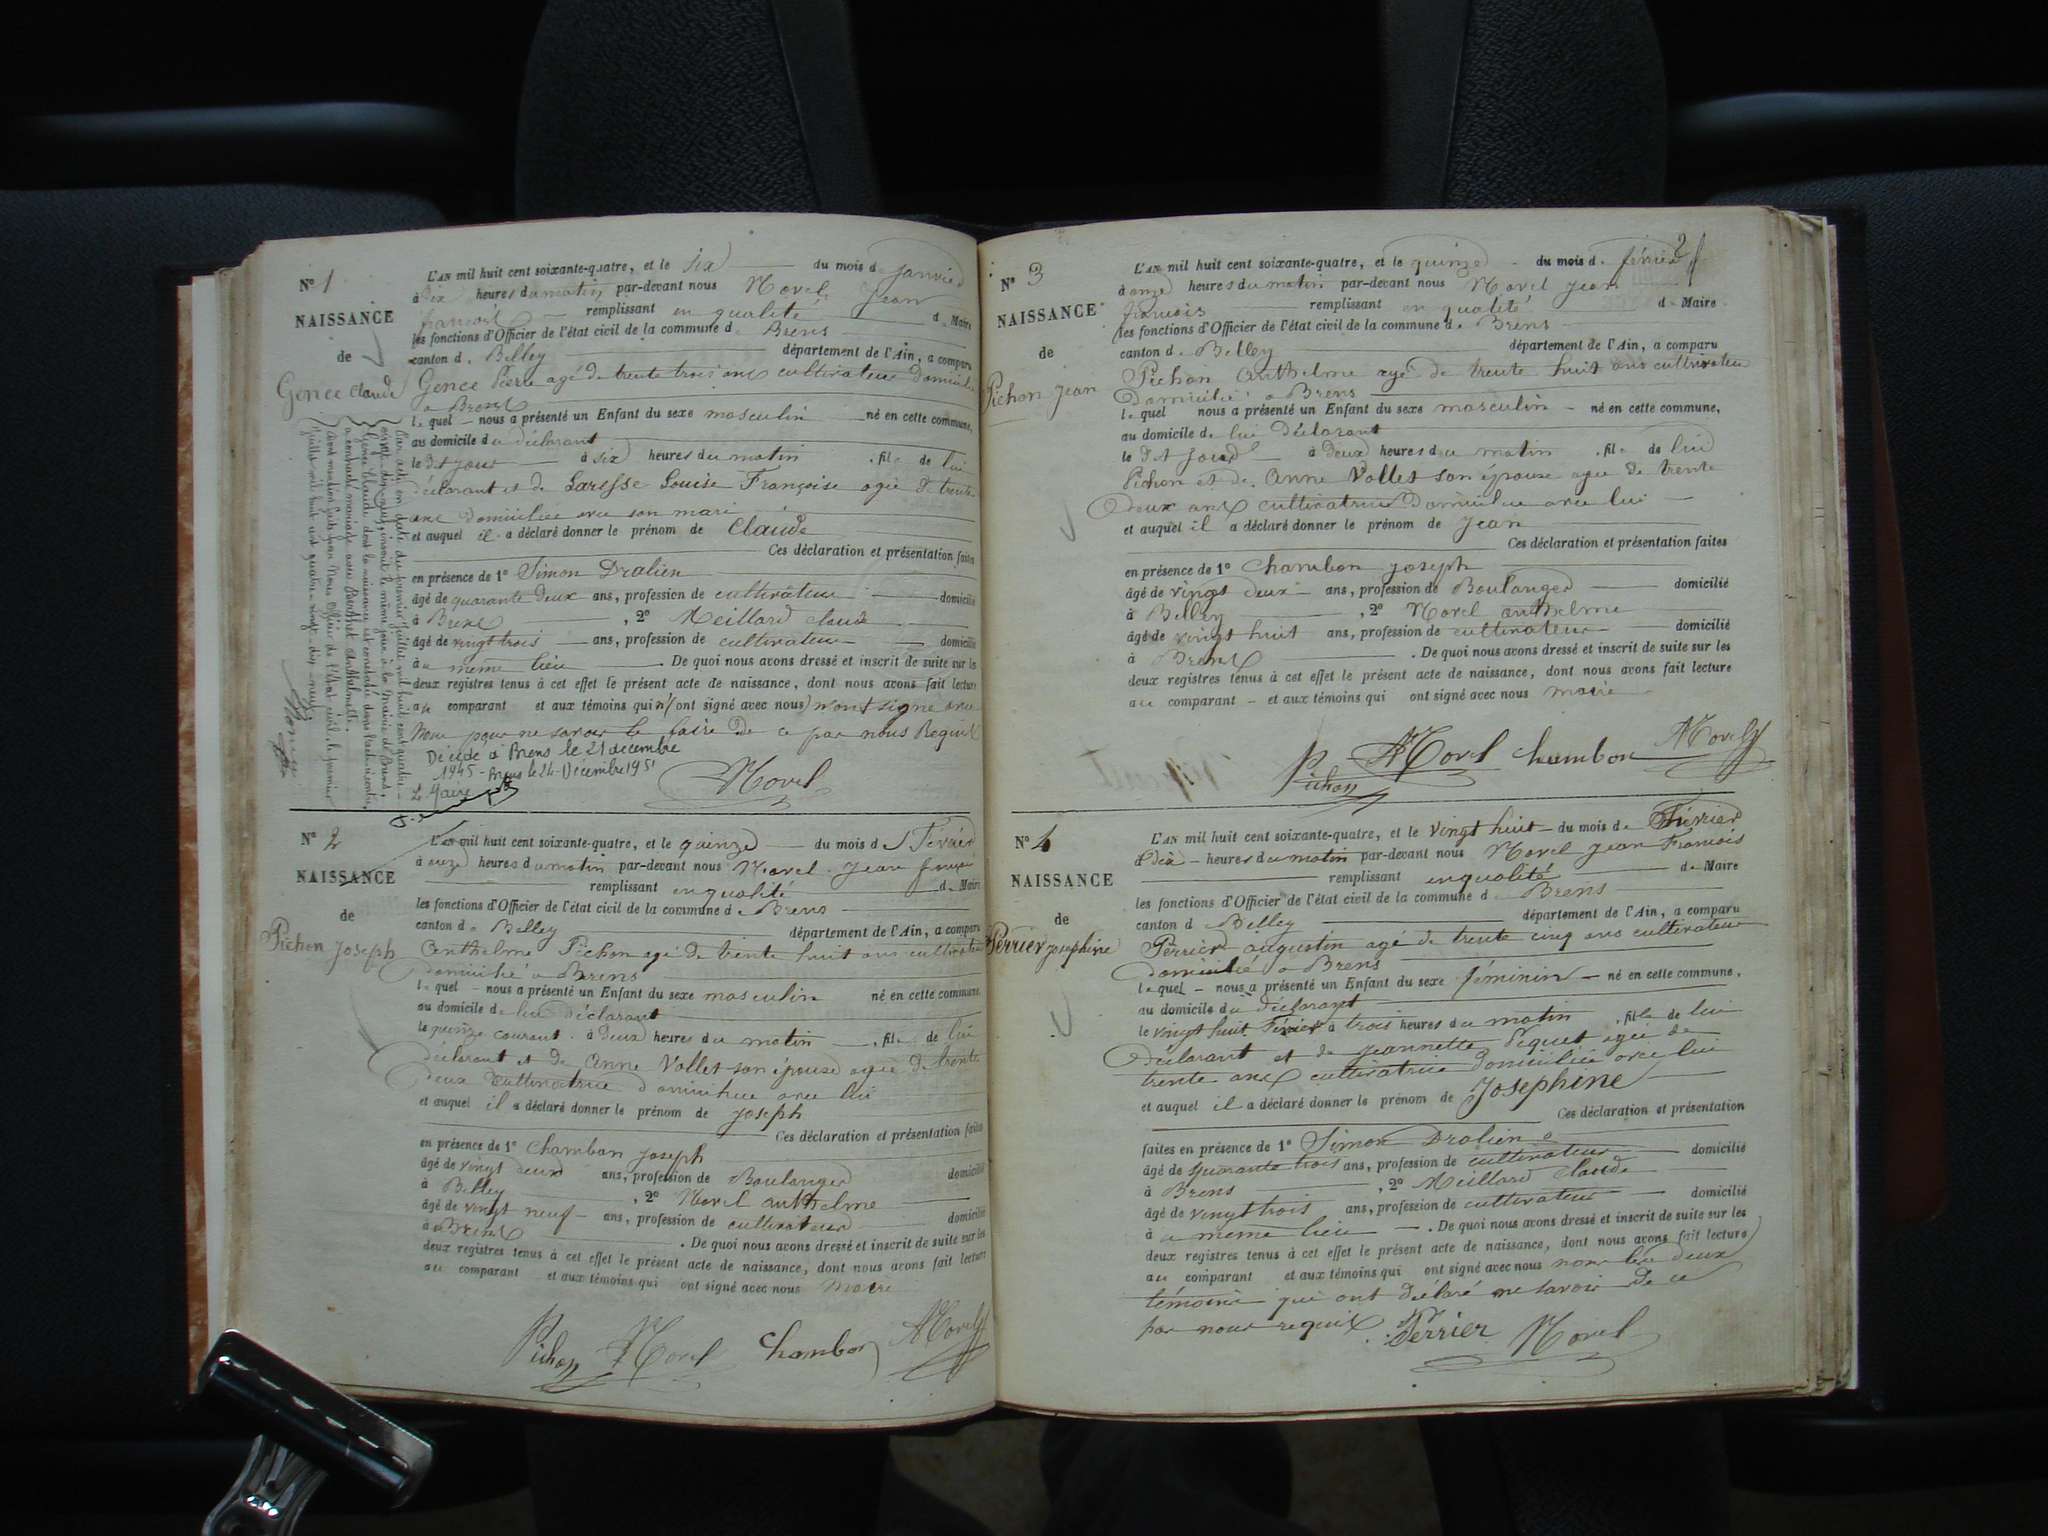 N° 1
NAISSANCE
de
Gence Claude
L'AN mil huit cent soixante-quatre, et le six du mois de Janvier
à dix heures du matin par-devant nous Morel Jean
françois remplissant en qualité de Maire
les fonctions d'Officier de l'état civil de la commune de Brens
canton de Belley département de l'Ain, a comparu
Gence Pierre agé de trente trois ans cultivateur Domicilié
a Brens
lequel nous a présenté un Enfant du sexe masculin né en cette commune,
au domicile du déclarant
le dit jour à six heures du matin, fils de lui
déclarant et de Louise Françoise agée de trente
ans domiciliée avec son mari
et auquel il a déclaré donner le prénom de Claude
Ces déclaration et présentation faites
en présence de 1° Simon Dralien
âgé de quarante deux ans, profession de cultivateur domicilié
à Brens, 2° Meillard claude
âgé de vingt trois ans, profession de cultivateur domicilié
à u meme lieu. De quoi nous avons dressé et inscrit de suite sur les
deux registres tenus à cet effet le présent acte de naissance, dont nous avons fait lecture
au comparant et aux témoins qui n'(ont signé avec nous) n'ont signé avec
Nous pour ne savoir le faire De ce par nous Requis
Décédé à Brens le 21 décembre
1945 - Brens le 24 Décembre 1951
Le Maire
Morel
Par acte en date du premier juillet mil huit cent quatre-
vingt-dix-neuf, inscrit le même jour à la Mairie de Brens,
Gence Claude dont la naissance est constatée dans l'acte ci-contre,
a contracté mariage avec Berthet Anthelmette.
Dont mention faite par Nous Officier de l'Etat civil, le premier
juillet mil huit cent quatre-vingt-dix-neuf.
N° 2
NAISSANCE
de
Pichon Joseph
L'AN mil huit cent soixante-quatre, et le quinze du mois de Février
à onze heures du matin par-devant nous Morel Jean françois
remplissant en qualité de Maire
les fonctions d'Officier de l'état civil de la commune de Brens
canton de Belley département de l'Ain, a comparu
Anthelme Pichon agé de trente huit ans cultivateur
domicilié a Brens
lequel nous a présenté un Enfant du sexe masculin né en cette commune,
au domicile de lui déclarant
le quinze courant à deux heures du matin, fils de lui
déclarant et de Anne Vollet son épouse agée de trente
deux cultivatrice domiciliée avec lui
et auquel il a déclaré donner le prénom de joseph
Ces déclaration et présentation faites
en présence de 1° Chambon joseph
âgé de vingt deux ans, profession de Boulanger domicilié
à Belley, 2° Morel anthelme
âgé de vingt neuf ans, profession de cultivateur domicilié
à Brens. De quoi nous avons dressé et inscrit de suite sur les
deux registres tenus à cet effet le présent acte de naissance, dont nous avons fait lecture
au comparant et aux témoins qui ont signé avec nous maire
Pichon Morel Chambon AMorel
2
N° 3
NAISSANCE
de
Pichon Jean
L'AN mil huit cent soixante-quatre, et le quinze du mois de février
à onze heures du matin par-devant nous Morel jean
françois remplissant en qualité de Maire
les fonctions d'Officier de l'état civil de la commune de Brens
canton de Belley département de l'Ain, a comparu
Pichon Anthelme agé de trente huit ans cultivateur
Domicilié a Brens
lequel nous a présenté un Enfant du sexe masculin né en cette commune,
au domicile de lui Déclarant
le dit jour à deux heures du matin, fils de lui
Pichon et de Anne Vollet son épouse agée de trente
Deux ans cultivatrice Domiciliée avec lui
et auquel il a déclaré donner le prénom de jean
Ces déclaration et présentation faites
en présence de 1° Chambon joseph
âgé de vingt deux ans, profession de Boulanger domicilié
à Belley, 2° Morel anthelme
âgé de vingt huit ans, profession de cultivateur domicilié
à Brens. De quoi nous avons dressé et inscrit de suite sur les
deux registres tenus à cet effet le présent acte de naissance, dont nous avons fait lecture
au comparant et aux témoins qui ont signé avec nous maire
Pichon Morel Chambon AMorel
N° 4
NAISSANCE
de
Perrier josephine
L'AN mil huit cent soixante-quatre, et le vingt huit du mois de Février
à dix heures du matin par-devant nous Morel Jean François
remplissant en qualité de Maire
les fonctions d'Officier de l'état civil de la commune de Brens
canton de Belley département de l'Ain, a comparu
Perrier augustin agé de trente cinq ans cultivateur
domicilié a Brens
lequel nous a présenté un Enfant du sexe féminin né en cette commune,
au domicile du déclarant
le vingt huit Février à trois heures du matin, fille de lui
Déclarant et de jeannette Piquet agée de
trente ans cultivatrice Domiciliée avec lui
et auquel il a déclaré donner le prénom de Josephine
Ces déclaration et présentation
faites en présence de 1° Simon Dralien
âgé de quarante trois ans, profession de cultivateur domicilié
à Brens, 2° Meillard Claude
âgé de vingt trois ans, profession de cultivateur domicilié
à u meme lieu. De quoi nous avons dressé et inscrit de suite sur les
deux registres tenus à cet effet le présent acte de naissance, dont nous avons fait lecture
au comparant et aux témoins qui ont signé avec nous non les deux
témoins qui ont déclaré ne savoir De ce
par nous requis Perrier Morel